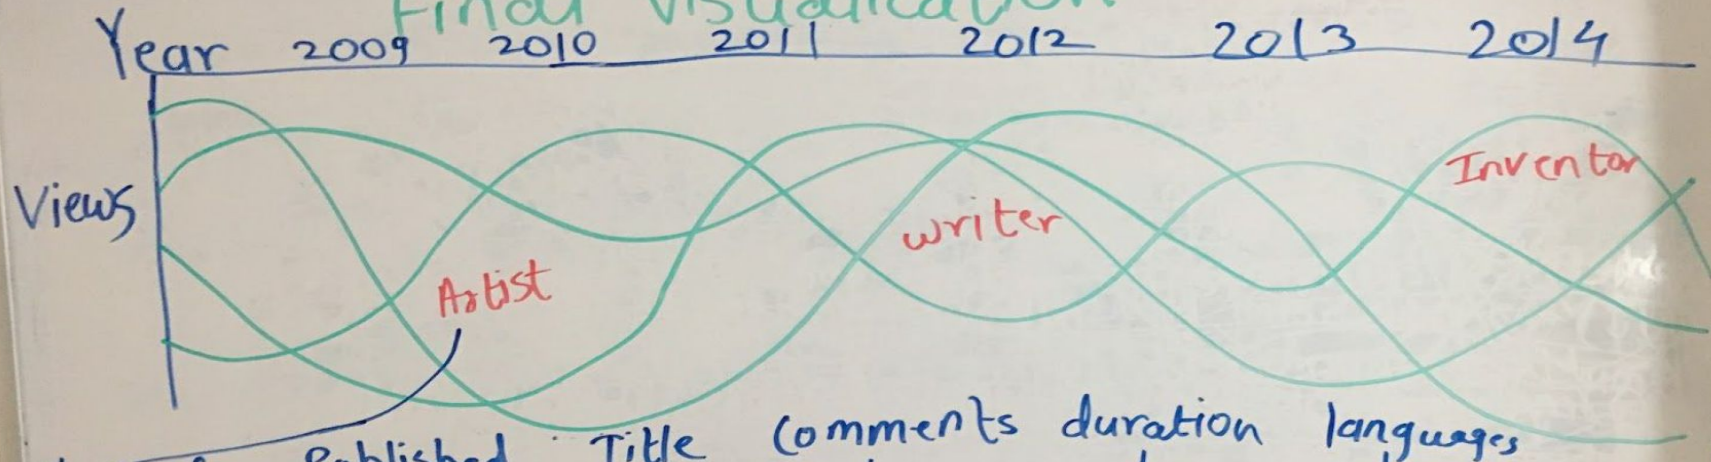 Final Visualization
Year 2009 2010 2011 2012 2013 2014
Views
Inventor
Writer
Artist
Published Title Comments duration languages